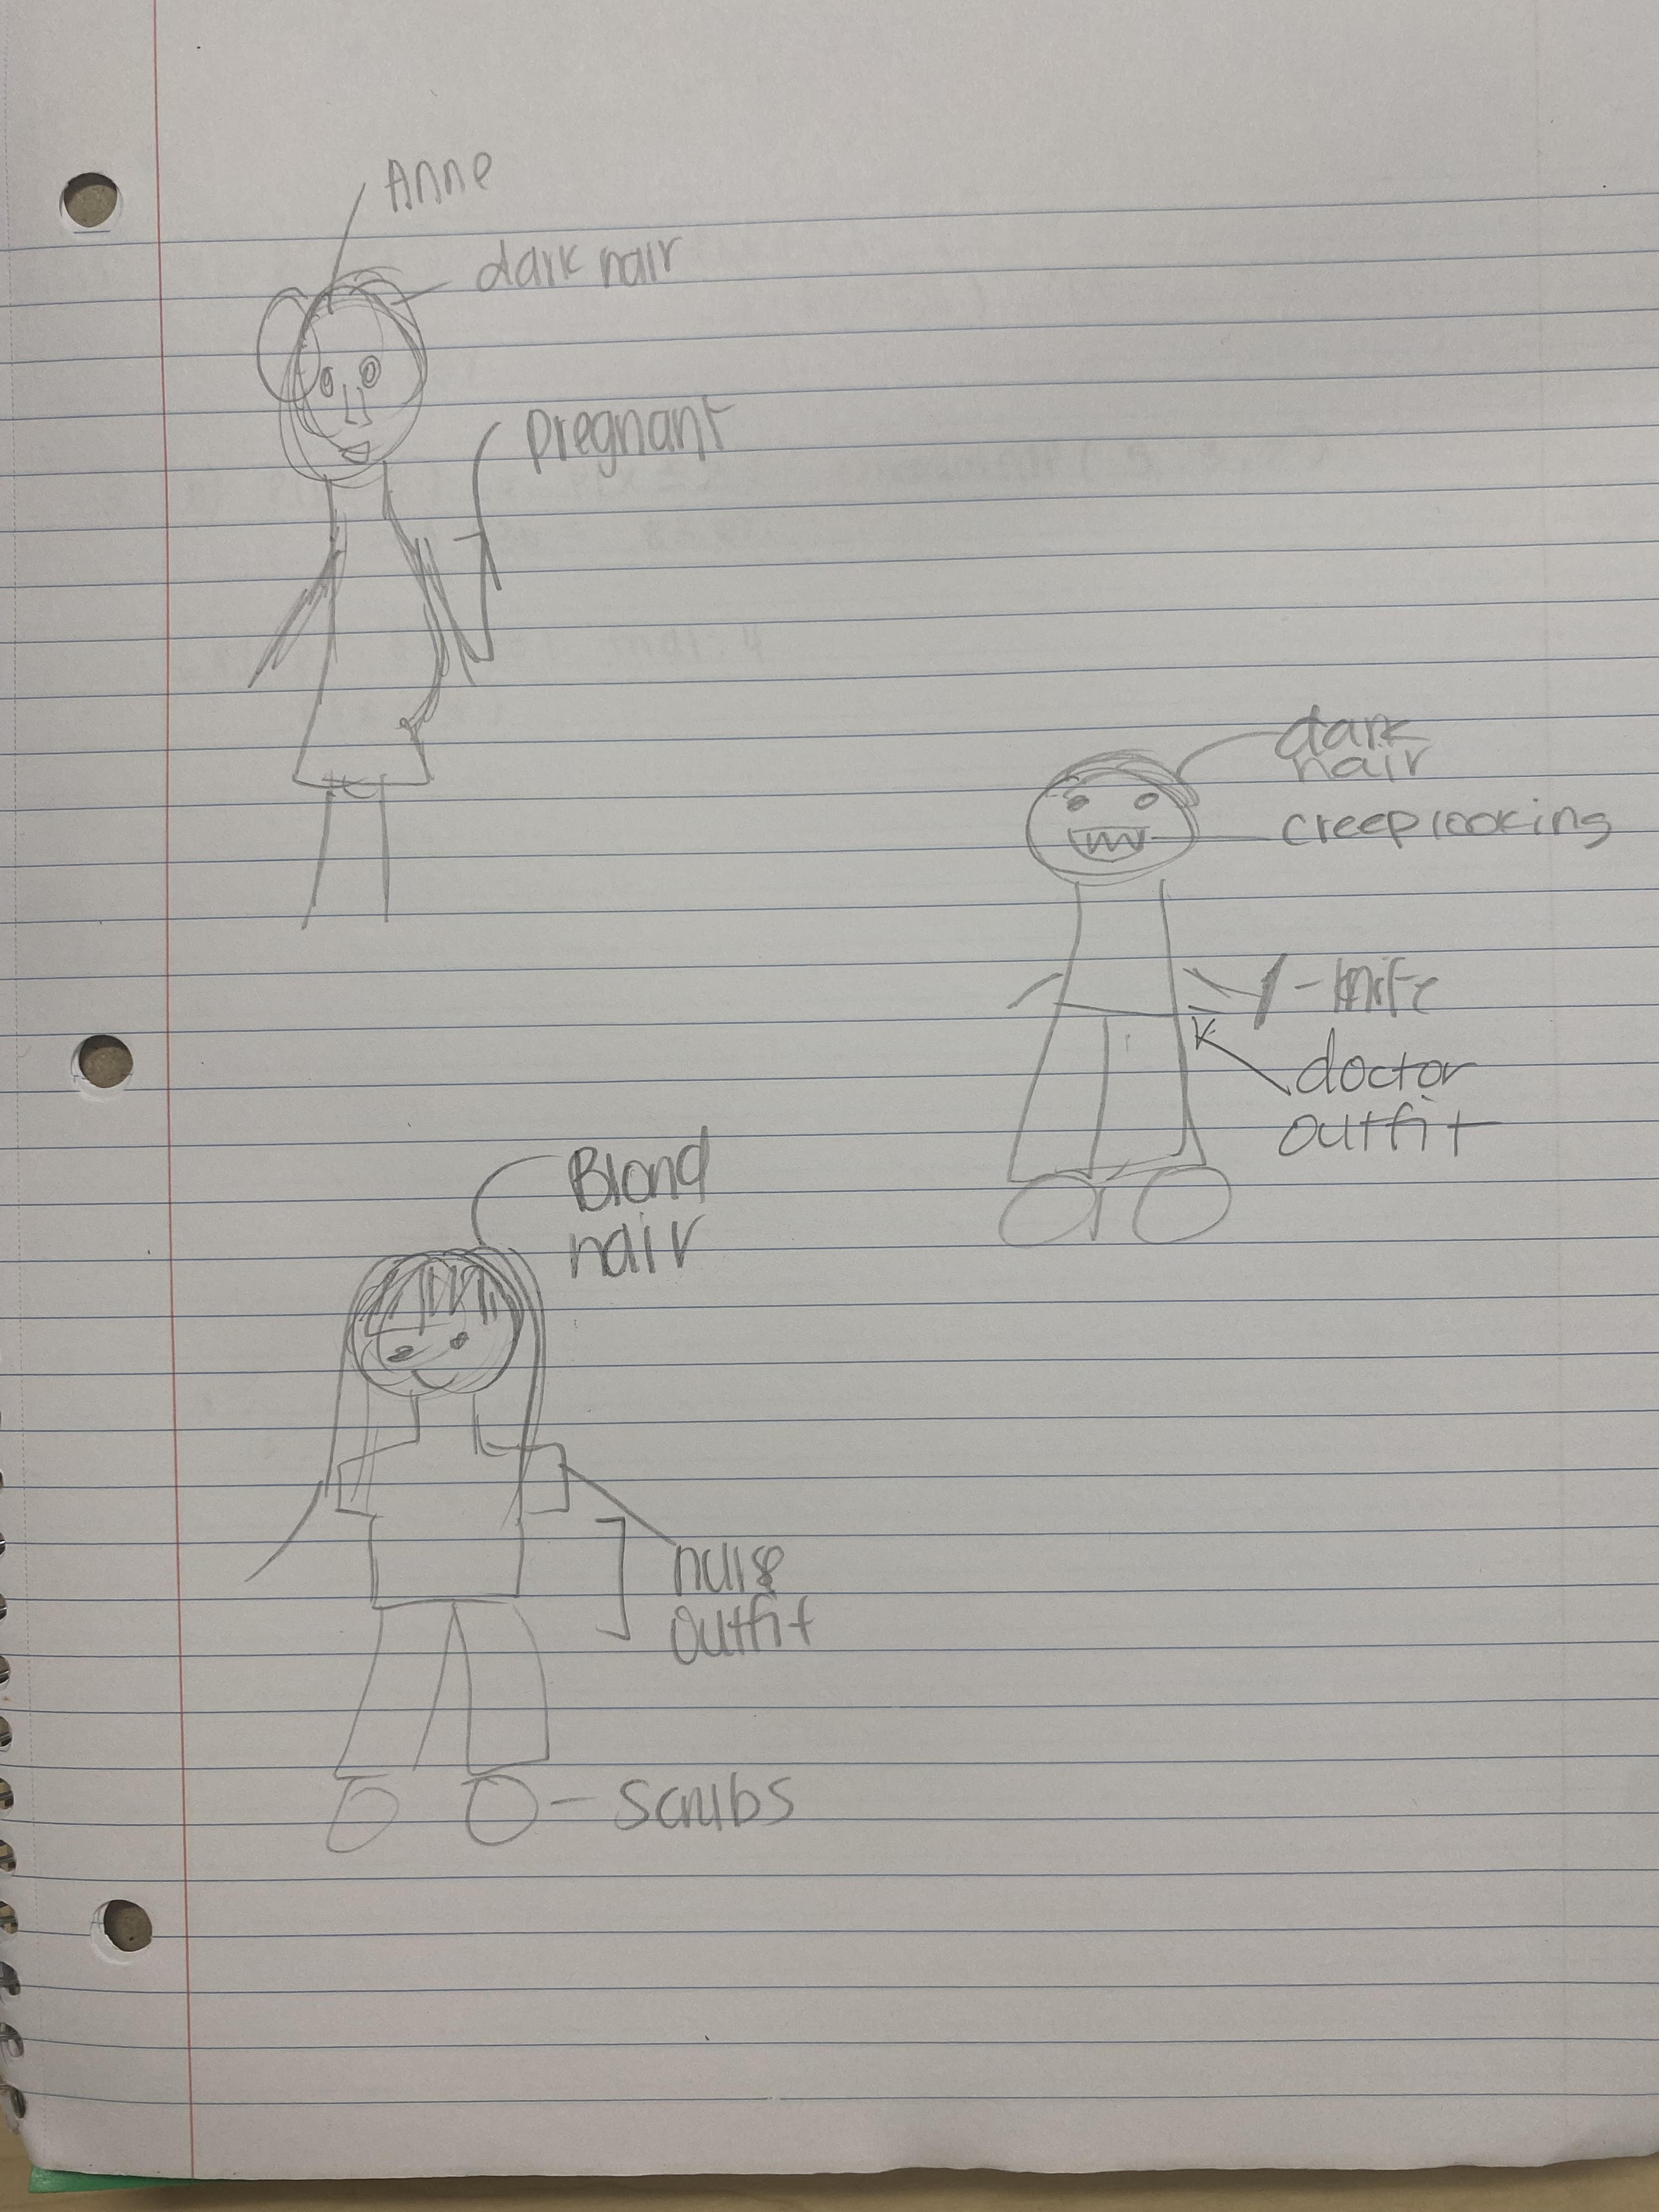 Anne
dark hair
pregnant
dark
hair
creep looking
knife
doctor
outfit
Blond
hair
nurse
outfit
scrubs